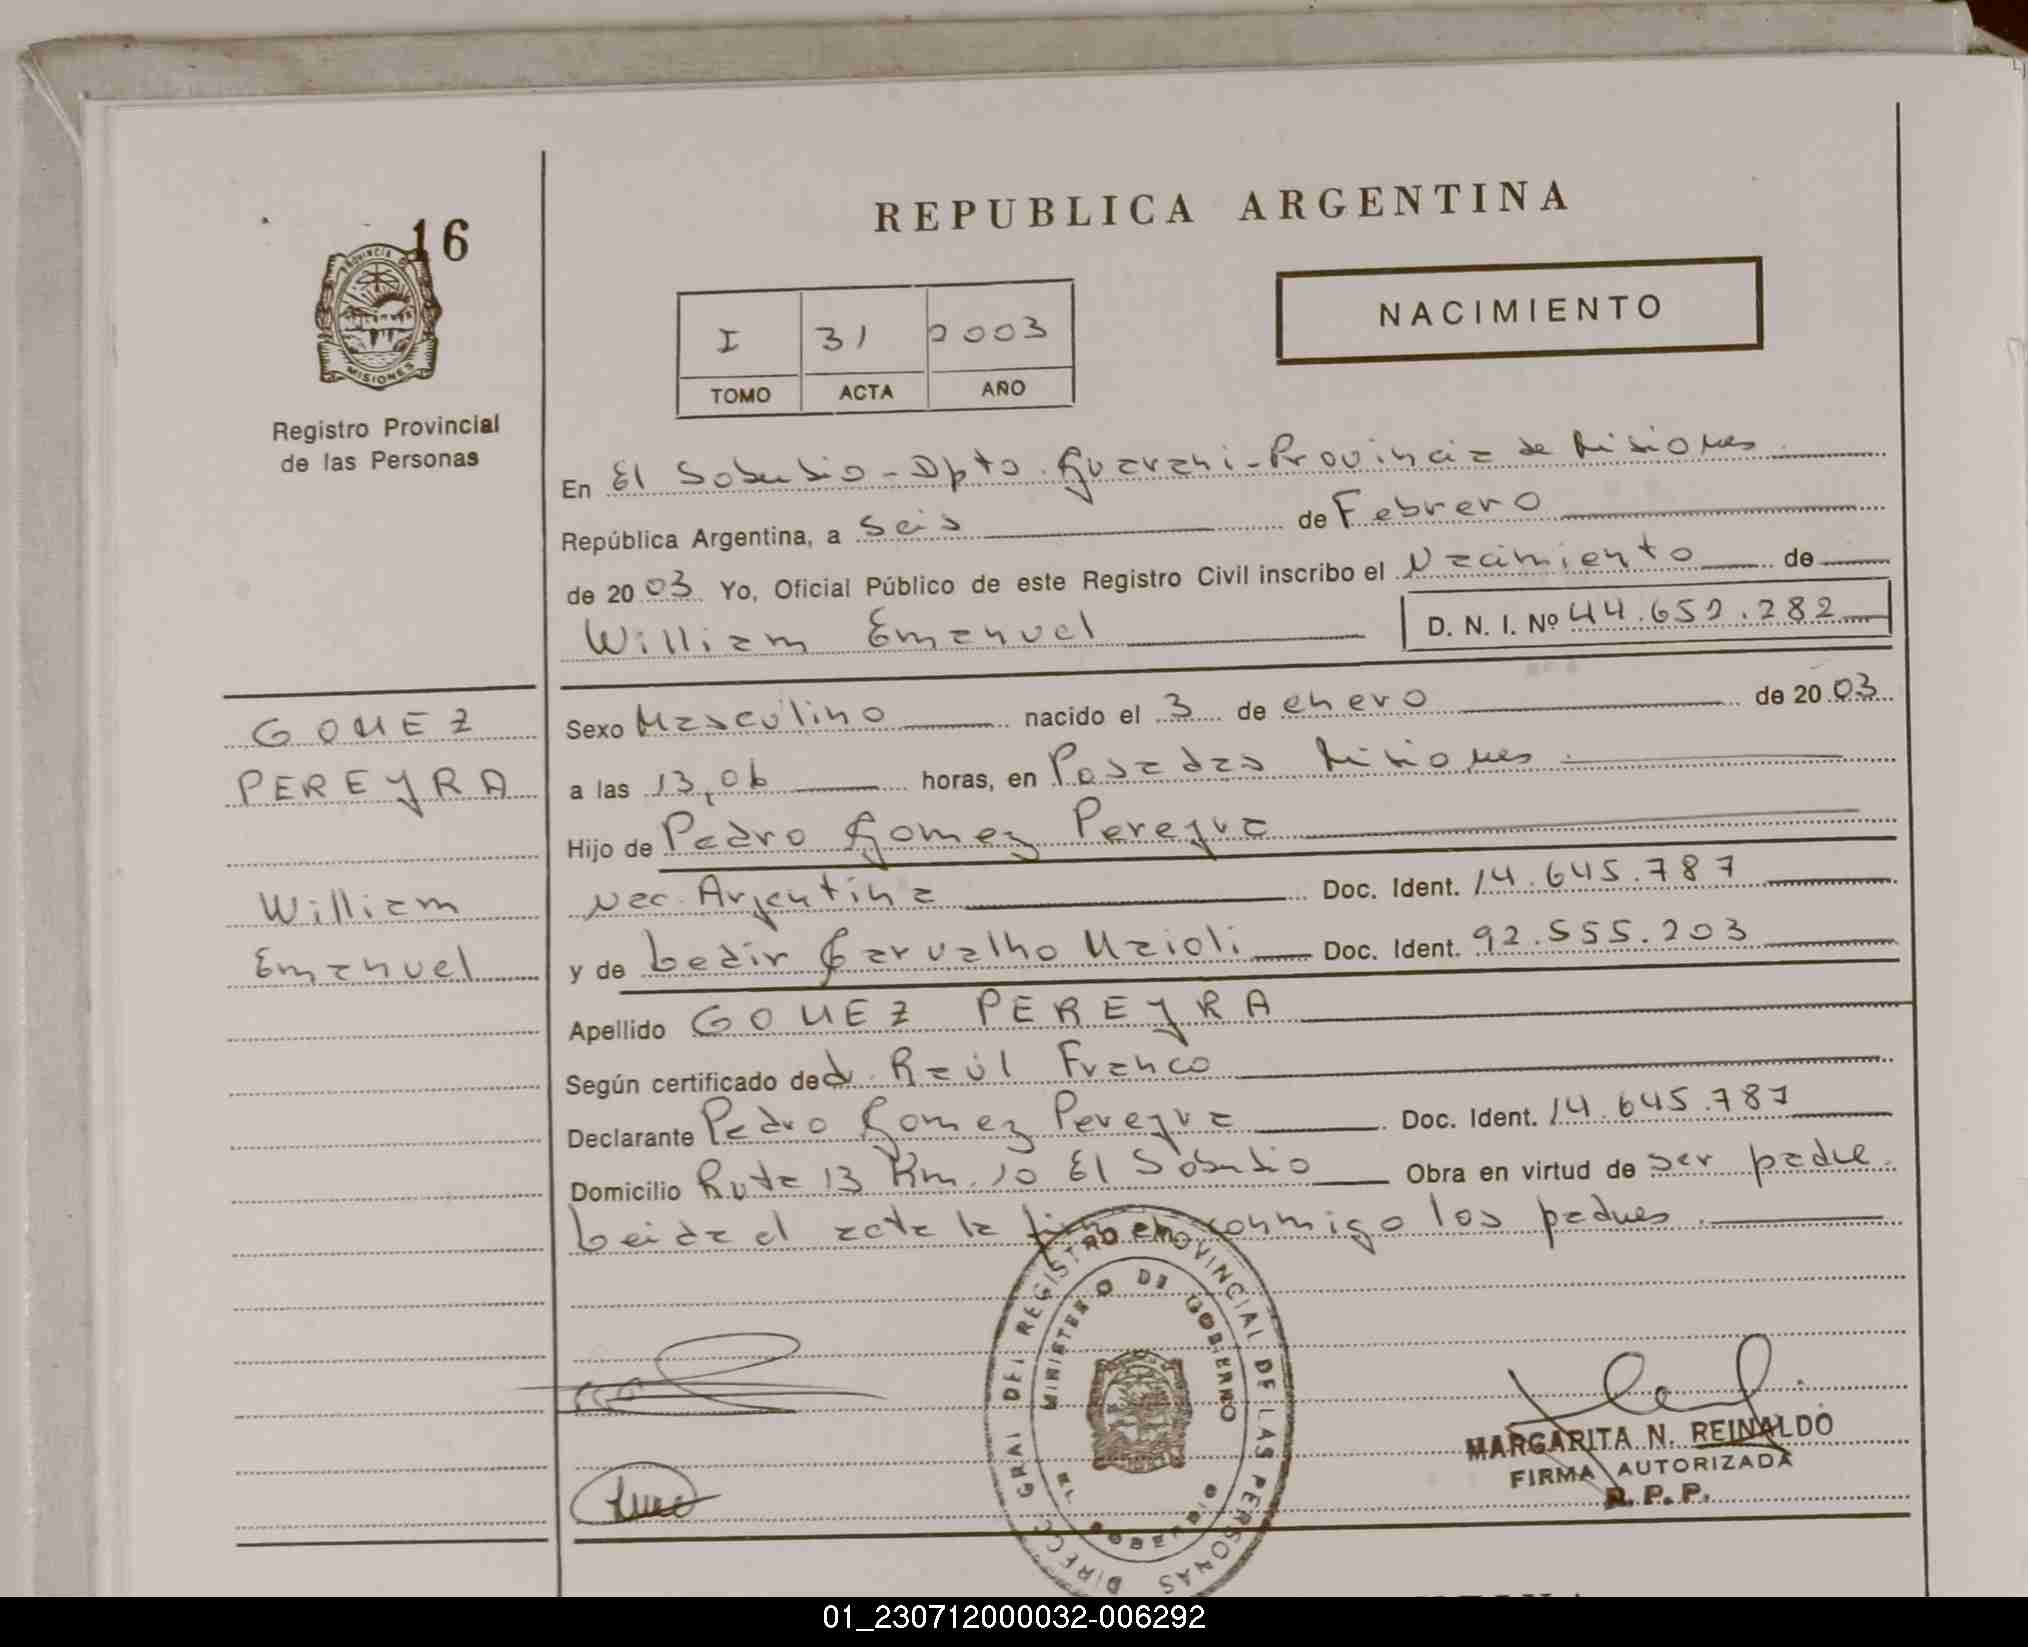 16
PROVINCIA DE
MISIONES
Registro Provincial
de las Personas
REPUBLICA ARGENTINA
NACIMIENTO
I 31 2003
TOMO ACTA AÑO
En El Soberbio - Dpto. Guarani - Provincia de Misiones
República Argentina, a seis de Febrero
de 2003 Yo, Oficial Público de este Registro Civil inscribo el Nacimiento de
William Emanuel D. N. I. Nº 44.652.282
GOMEZ
PEREYRA
William
Emanuel
Sexo Masculino nacido el 3 de enero de 2003
a las 13,06 horas, en Posadas Misiones
Hijo de Pedro Gomez Pereyra
Nac. Argentina Doc. Ident. 14.645.787
y de Ledir Carvalho Maioli Doc. Ident. 92.555.203
Apellido GOMEZ PEREYRA
Según certificado de dr. Raúl Franco
Declarante Pedro Gomez Pereyra Doc. Ident. 14.645.787
Domicilio Ruta 13 Km. 10 El Soberbio Obra en virtud de ser padre.
Leida el acta la firman conmigo los padres.
DIREC. GRAL DEL REGISTRO PROVINCIAL DE LAS PERSONAS
MINISTERIO DE GOBIERNO
EL SOBERBIO
MARGARITA N. REINALDO
FIRMA AUTORIZADA
R. P. P.
01_230712000032-006292